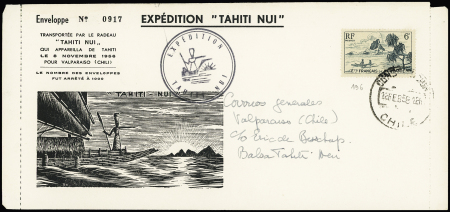 Enveloppe No 0917
EXPÉDITION "TAHITI NUI"
TRANSPORTÉE PAR LE RADEAU
"TAHITI NUI"
QUI APPAREILLA DE TAHITI
LE 8 NOVEMBRE 1956
POUR VALPARAISO (CHILI)
LE NOMBRE DES ENVELOPPES
FUT ARRÊTÉ À 1000
EXPÉDITION
TAHITI NUI
RF
6F
CHILE
TAHITI - NUI
Correos generales
Valparaiso (Chile)
c/o Eric de Bisschop
Balsa Tahiti Nui